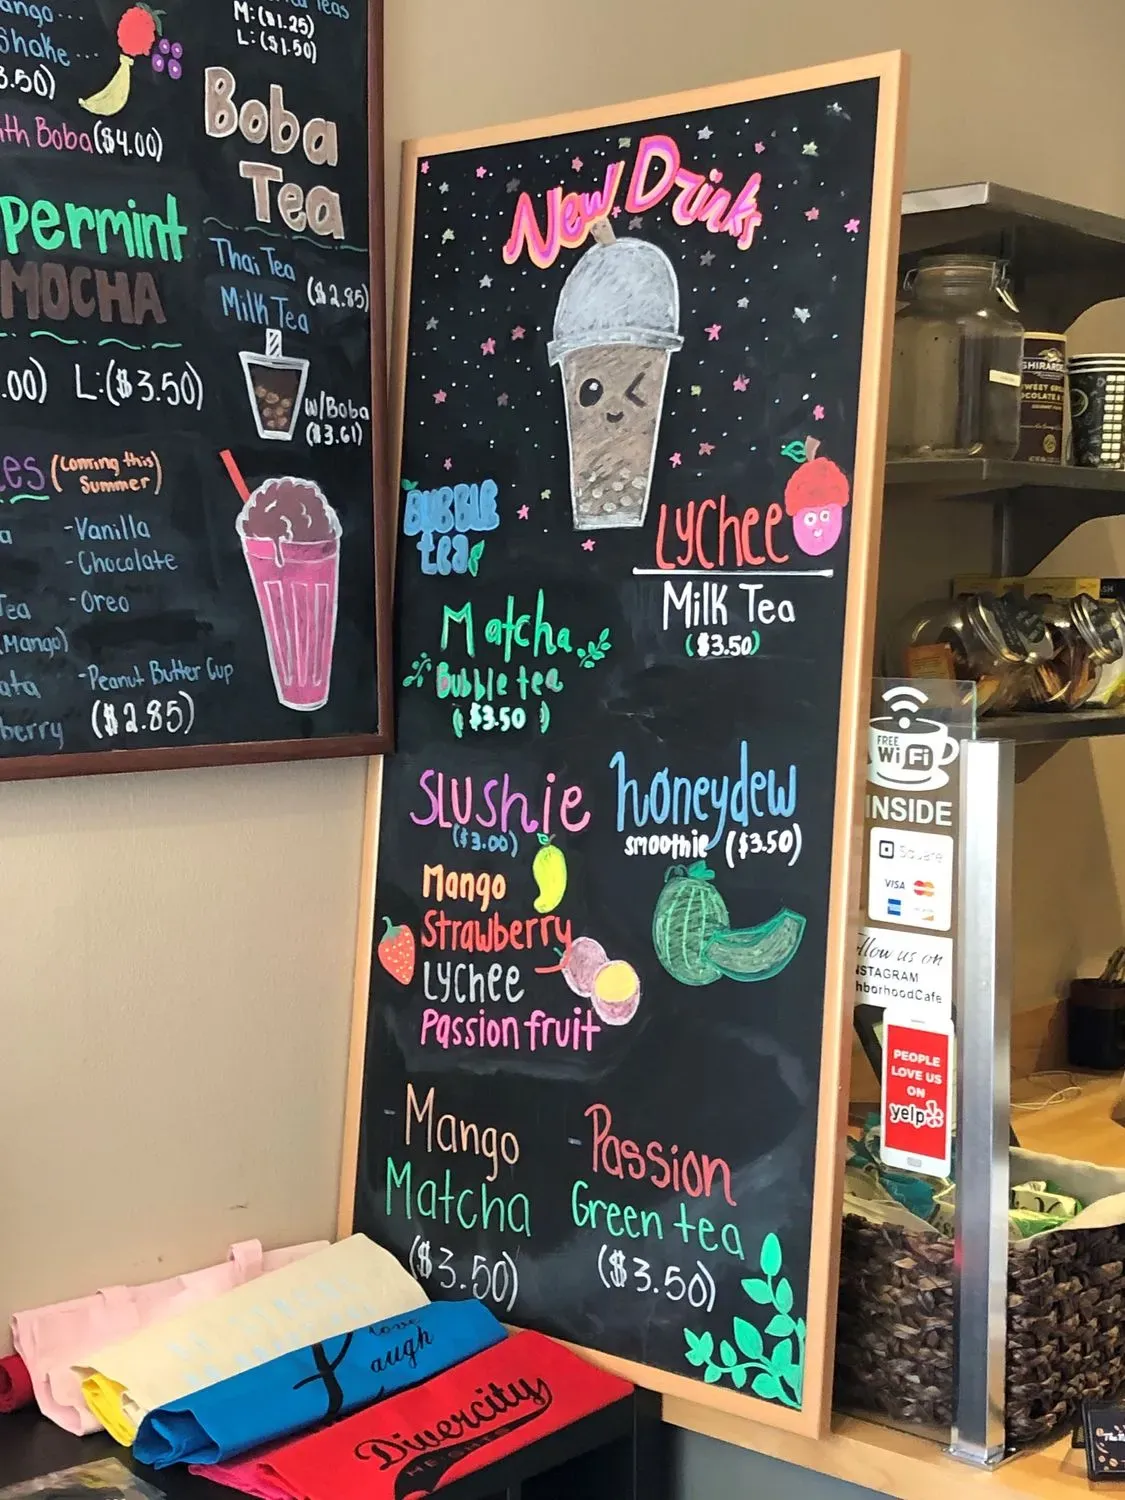 ango...
Shake...
3.50)
ith Boba ($4.00)
Teas
M: ($1.25)
L: ($1.50)
Boba
Tea
Thai Tea
Milk Tea
($2.85)
w/Boba
($3.61)
permint
MOCHA
.00) L: ($3.50)
es (Coming this
Summer)
a
Tea
(Mango)
ata
berry
-Vanilla
-Chocolate
-Oreo
-Peanut Butter Cup
($2.85)
New Drinks
BUBBLE
tea
Matcha
Bubble tea
($3.50)
Lychee
Milk Tea
($3.50)
Slushie
($3.00)
Mango
Strawberry
Lychee
Passion fruit
honeydew
smoothie ($3.50)
- Mango
Matcha
($3.50)
- Passion
Green tea
($3.50)
GHIRARD
FREE
Wi Fi
INSIDE
Square
VISA
ollow us on
NSTAGRAM
hborhoodCafe
PEOPLE
LOVE US
ON
yelp
love
augh
Divercity
HEIGHTS